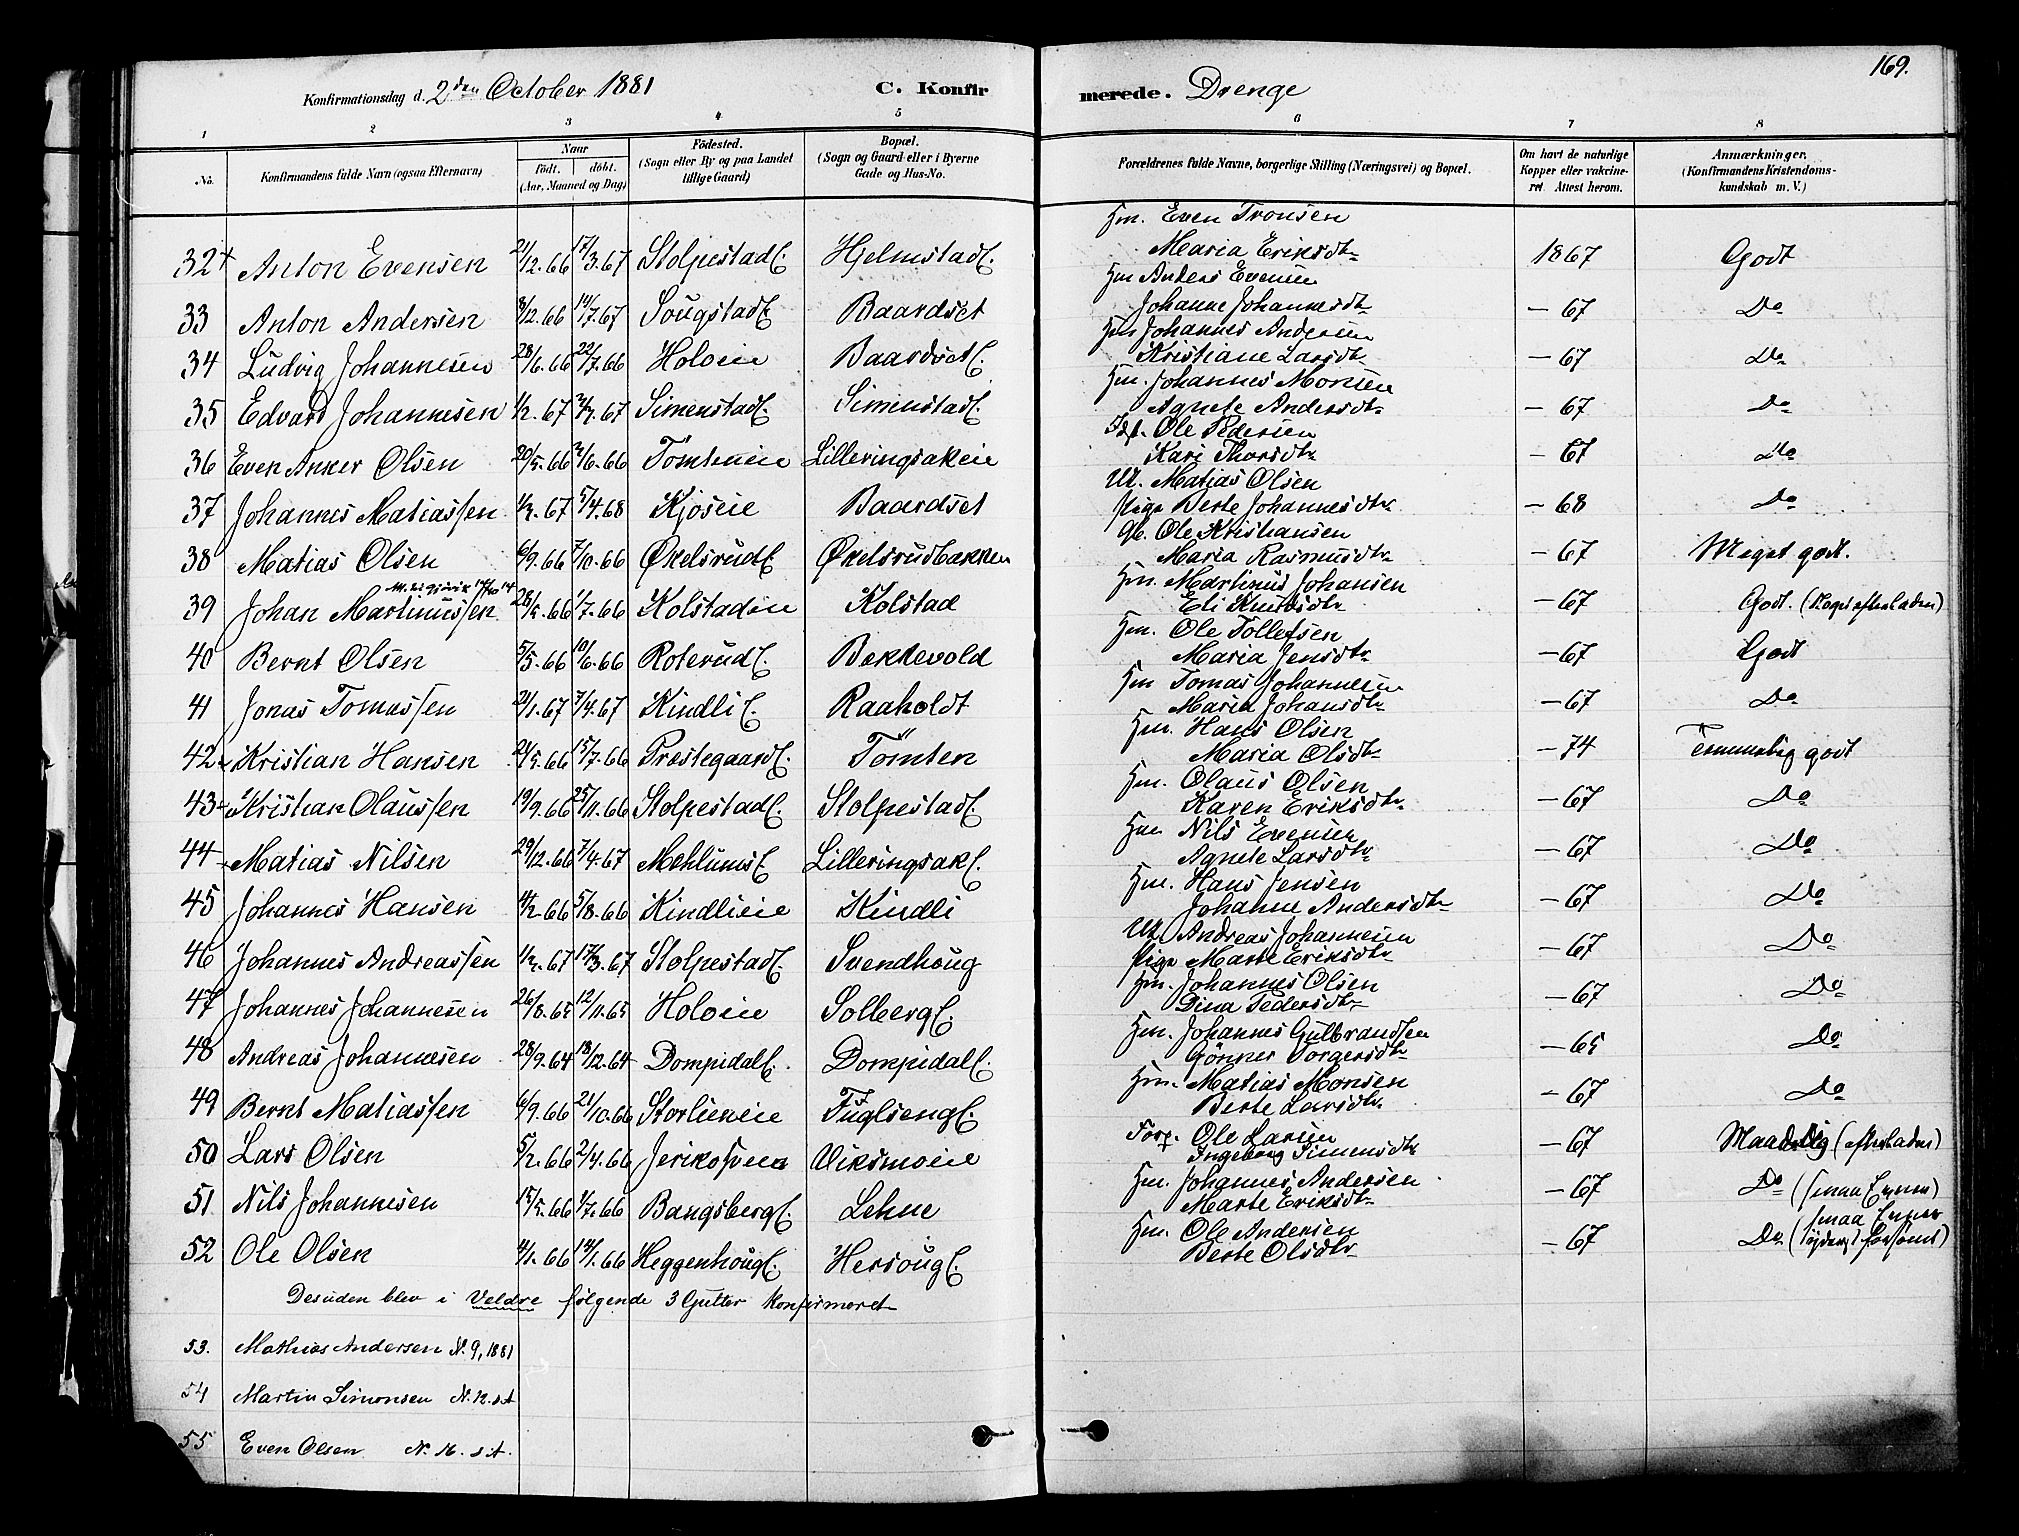 169.
Konfirmationsdag d. 2den October 1881 C. Konfirmerede. Drenge
1 2 3 4 5 6 7 8
No. Konfirmandens fulde Navn (ogsaa Efternavn) Naar födt. döbt. (Aar, Maaned og Dag) Födested. (Sogn eller By og paa Landet tillige Gaard) Bopæl. (Sogn og Gaard eller i Byerne Gade og Hus-No. Forældrenes fulde Navne, borgerlige Stilling (Næringsvei) og Bopæl. Om havt de naturlige Kopper eller vakcineret. Attest herom. Anmærkninger. (Konfirmandens Kristendomskundskab m. V.)
Hm. Even Tronsen
32+ Anton Evensen 21/12.66 17/3.67 Stolpestad E. Hjelmstad E. Maria Eriksdtr 1867 Godt
Hm Anders Evensen
33 Anton Andersen 8/12.66 14/7.67 Sougstad E. Baardset Johanne Johannesdtr - 67 Do
Hm Johannes Andersen
34 Ludvig Johannesen 28/6.66 22/7.66 Holoeie Baardset E. Kristiane Larsdtr - 67 Do
Hm. Johannes Monsen
35 Edvard Johannesen 1/2.67 Simenstad E. Simenstad E. Agnete Andersdtr - 67 Do
Ole Pedersen
36 Even Anker Olsen 20/5.66 Tömteneie Lilleringsakeie Kari Thorsdtr - 67 Do
U. Matias Olsen
37 Johannes Matiassen 1/3.67 5/4.68 Kjoseie Baardset Pige Berte Johannesdtr - 68 Do
Ole Kristiansen
38 Matias Olsen 6/9.66 7/10.66 Økelsrud E. Økelsrudbakken Maria Rasmusdtr - 67 Meget godt.
Hm. Martinus Johansen
39 Johan Martinussen 28/5.66 1/7.66 Kolstadeie Kolstad Eli Knudsdtr - 67 Godt. (Noget efterladen)
Hm. Ole Tollefsen
40 Bernt Olsen 5/5.66 10/6.66 Roterud E. Bekkevold Maria Jensdtr - 67 Godt
Hm Tomas Johannesen
41 Jonas Tomassen 21/1.67 7/4.67 Kindli E. Raaholdt Maria Johansdtr - 67 Do
Hm. Hans Olsen
42 Kristian Hansen 21/5.66 15/7.66 Prestegaard E. Tömten Maria Olsdtr - 74 Temmelig godt
Hm. Olaus Olsen
43 Kristian Olaussen 19/9.66 25/11.66 Stolpestad E. Stolpestad E. Karen Eriksdtr - 67 Do
Hm Nils Evensen
44 Matias Nilsen 29/12.66 7/4.67 Mehlums E. Lilleringsak E. Agnete Larsdtr - 67 Do
Hm. Hans Jensen
45 Johannes Hansen 11/2.66 5/8.66 Kindlieie Kindli Johanne Andersdtr - 67 Do
U. Andreas Johannesen
46 Johannes Andreassen 1/2.67 17/3.67 Stolpestad E. Svendhoug Pige Marte Eriksdtr - 67 Do
Hm. Johannes Olsen
47 Johannes Johannesen 26/8.65 12/11.65 Holoeie Solberg E. Dina Pedersdtr - 67 Do
Hm. Johannes Gulbrandsen
48 Andreas Johannesen 28/9.64 18/12.64 Dompidal E. Dompidal E. Gönner Torgersdtr - 65 Do
Hm. Matias Monsen
49 Bernt Matiassen 6/9.66 21/10.66 Storlieneie Fuglseng E. Berte Larsdtr - 67 Do
Forp. Ole Larsen
50 Lars Olsen 5/2.66 2/4.66 Viksmoeie Ingeborg Simensdtr - 67 Maadelig (efterladen)
Hm. Johannes Andersen
51 Nils Johannesen 15/5.66 1/7.66 Bangsberg E. Lehne Marte Eriksdtr - 67 Do (smaa Evner)
Hm. Ole Andersen smaa Evner
52 Ole Olsen 4/1.66 14/1.66 Heggenhoug E. Hersoug E. Berte Olsdtr - 67 Do (yderst forsömt)
Desuden blev i Veldre følgende 3 Gutter konfirmeret
53. Mathias Andersen N. 9, 1881
54 Martin Simonsen N. 12. s.A
55 Even Olsen N. 16. s.A.